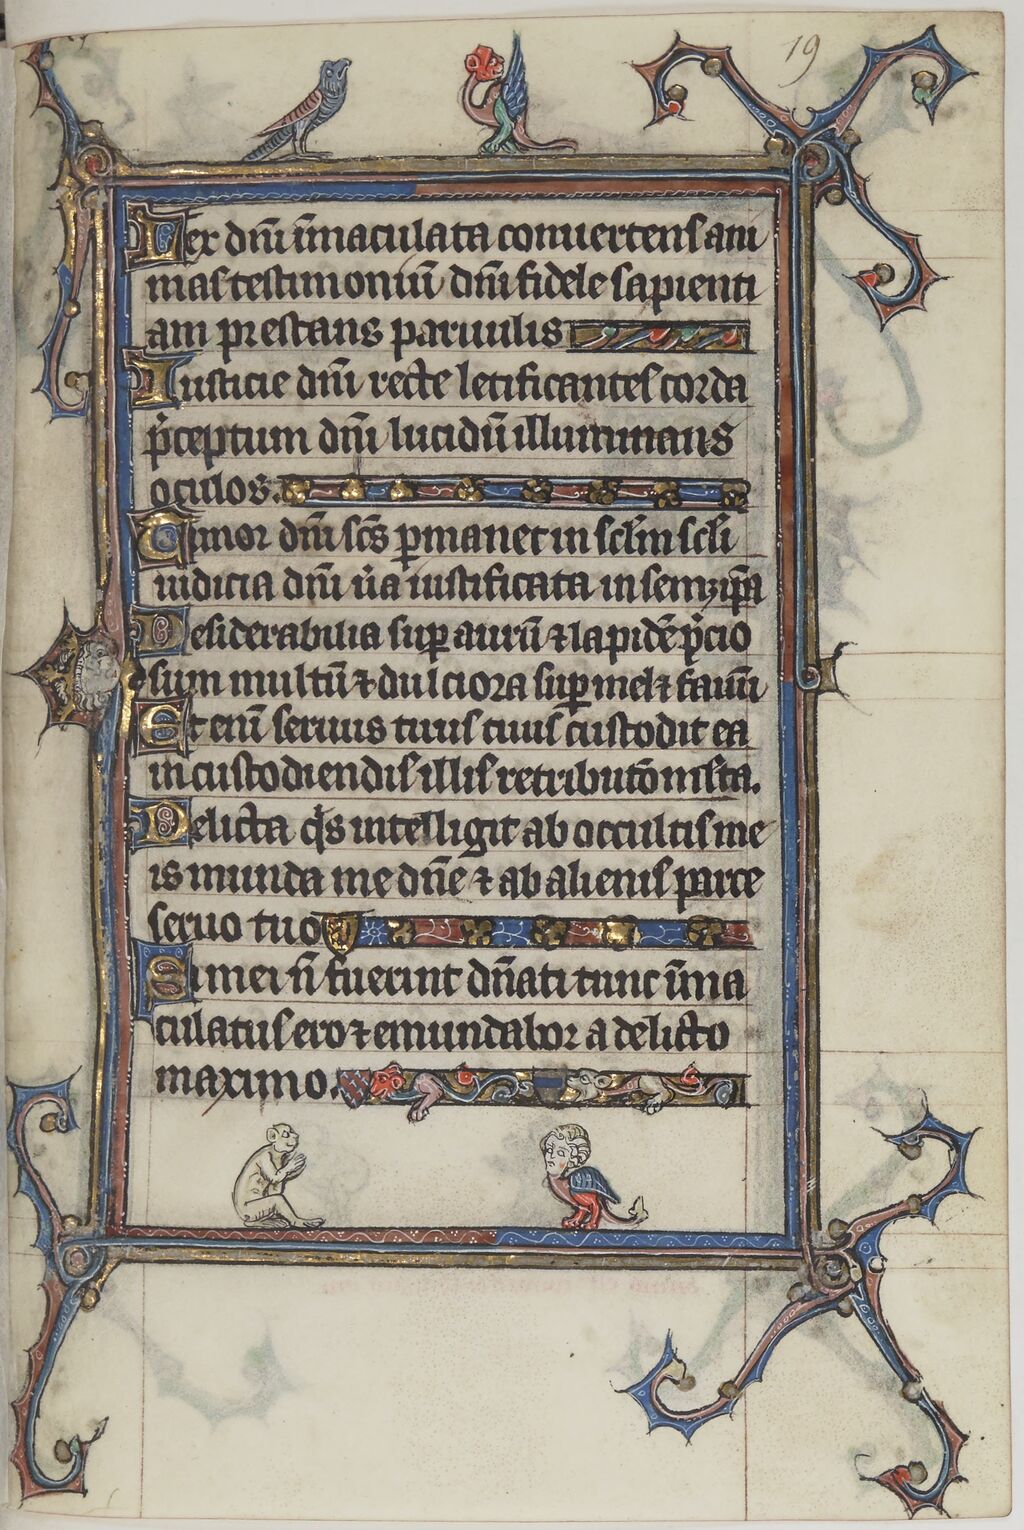 19
Lex dn̄i īmaculata conuertens ani
mas testimoniū dn̄i fidele sapienti
am prestans paruulis
Iusticie dn̄i recte letificantes corda
p̄ceptum dn̄i lucidū illuminans
oculos.
Timor dn̄i scs̄ ꝑmanet in sclm̄ sclī
iudicia dn̄i ūa iustificata in semꝫip̄a
Desiderabilia suꝑ aurū ⁊ lapidē p̄cio
sum multū ⁊ dulciora suꝑ mel ⁊ fauū
Et enī seruus tuus tuus custodit ea
in custodiendis illis retributō m̄lta.
Delicta q̄s intelligit ab occultis me
is munda me dn̄e ⁊ ab alienis parce
seruo tuo
Si mei n̄ fuerint dn̄ati tunc īma
culatus ero ⁊ emundabor a delicto
maximo.